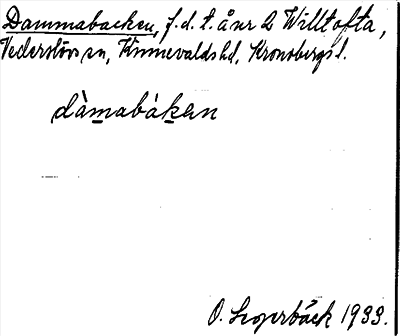 Dammabacken, f.d. t. å nr 2 Willtofta,
Vederslövs sn, Kinnevalds hd, Kronobergs l.
dàmabàkan
O. 1933.